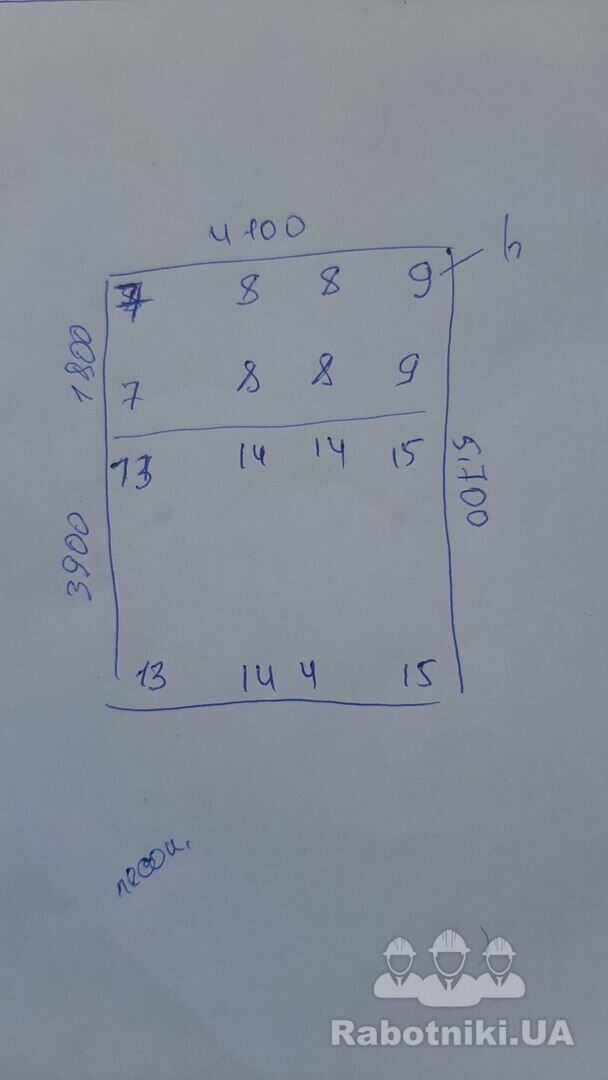 4100
7 8 8 9 h
1800
7 8 8 9
13 14 14 15
5700
3900
13 14 4 15
песок,
Rabotniki.UA